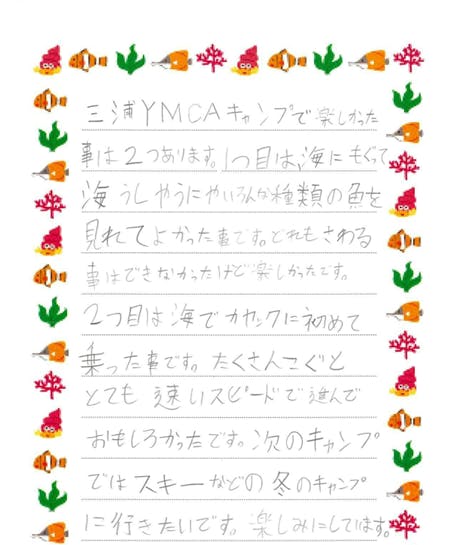 三浦YMCAキャンプで楽しかった
事は2つあります。1つ目は、海にもぐって
海うしやうにやいろんな種類の魚を
見れてよかった事です。どれもさわる
事はできなかったけど楽しかったです。
2つ目は海でカヤックに初めて
乗った事です。たくさんこぐと
とても速いスピードで進んで
おもしろかったです。次のキャンプ
ではスキーなどの冬のキャンプ
に行きたいです。楽しみにしています。